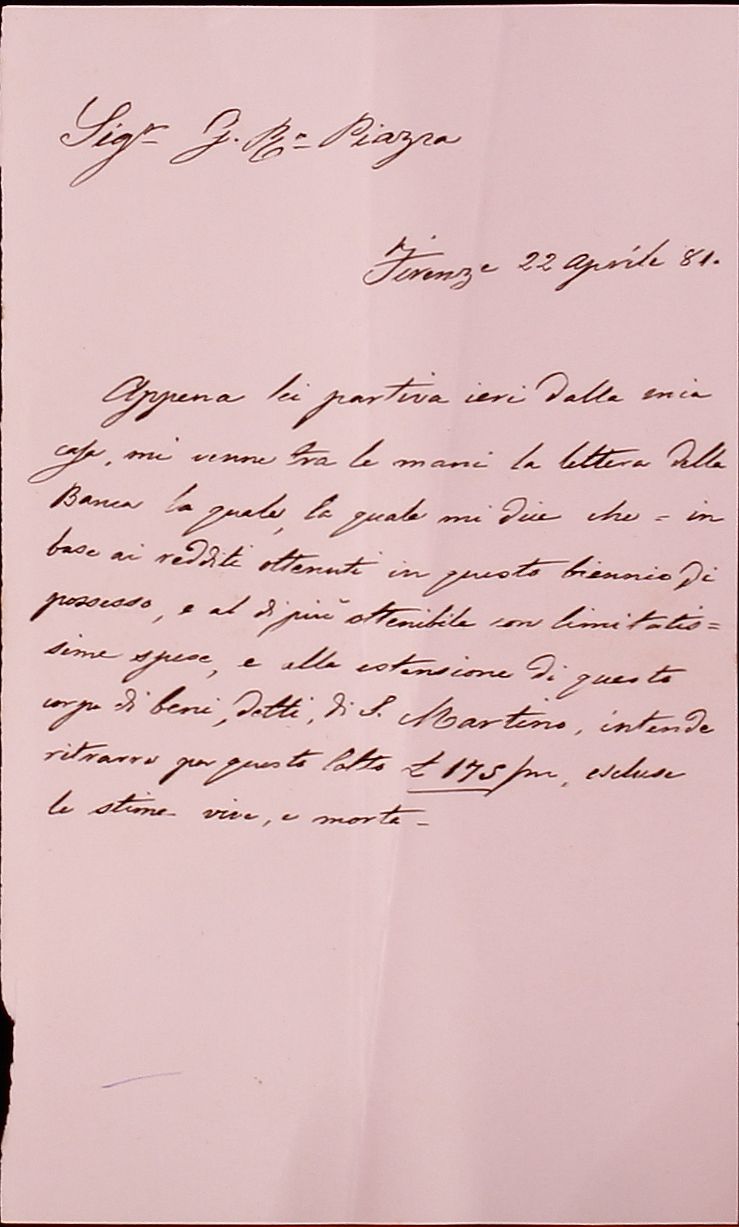 Sigr G. Bn Piazza
Firenze 22 Aprile 81.
Appena lei partiva ieri dalla mia
casa, mi venne tra le mani la lettera della
Banca la quale, la quale mi dice che = in
base ai redditi ottenuti in questo biennio di
possesso, e al di più ottenibile con limitatis=
sime spese, e alla estensione di questo
corpo di beni, detti, di S. Martino, intende
ritrarre per questo latto £ 175/m, escluse
le stime vive, e morte =